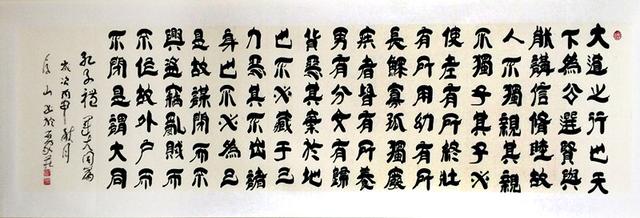 大道之行也天
下為公選賢與
能講信脩睦故
人不獨親其親
不獨子其子
使老有所終壯
有所用幼有所
長鰥寡孤獨廢
疾者皆有所養
男有分女有歸
貨惡其棄於地
也不必藏于己
力惡其不出諸
身也不必為己
是故謀閉而不
興盜竊亂賊而
不作故外戶而
不閉是謂大同
孔子禮運大同篇
歲次丙申秋月
山書於